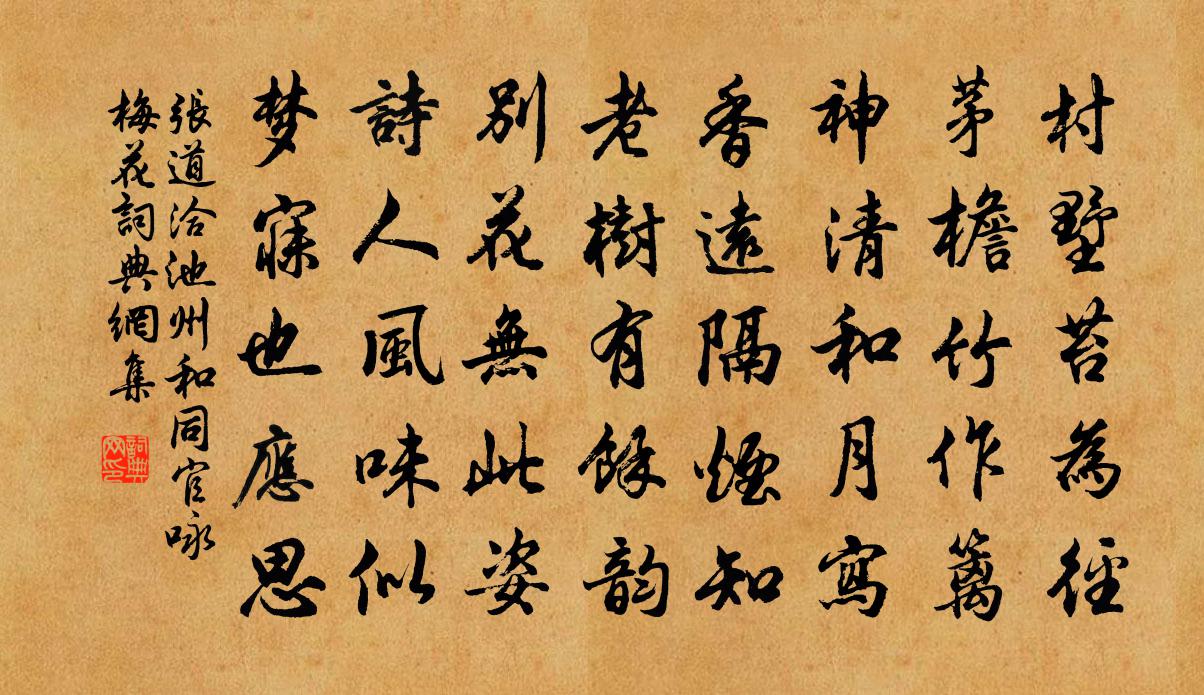 村墅苔為徑
茅檐竹作籬
神清和月寫
香遠隔煙知
老樹有餘韵
別花無此姿
詩人風味似
梦寐也應思
張道洽池州和同官咏
梅花詞典網集
詞典
网印